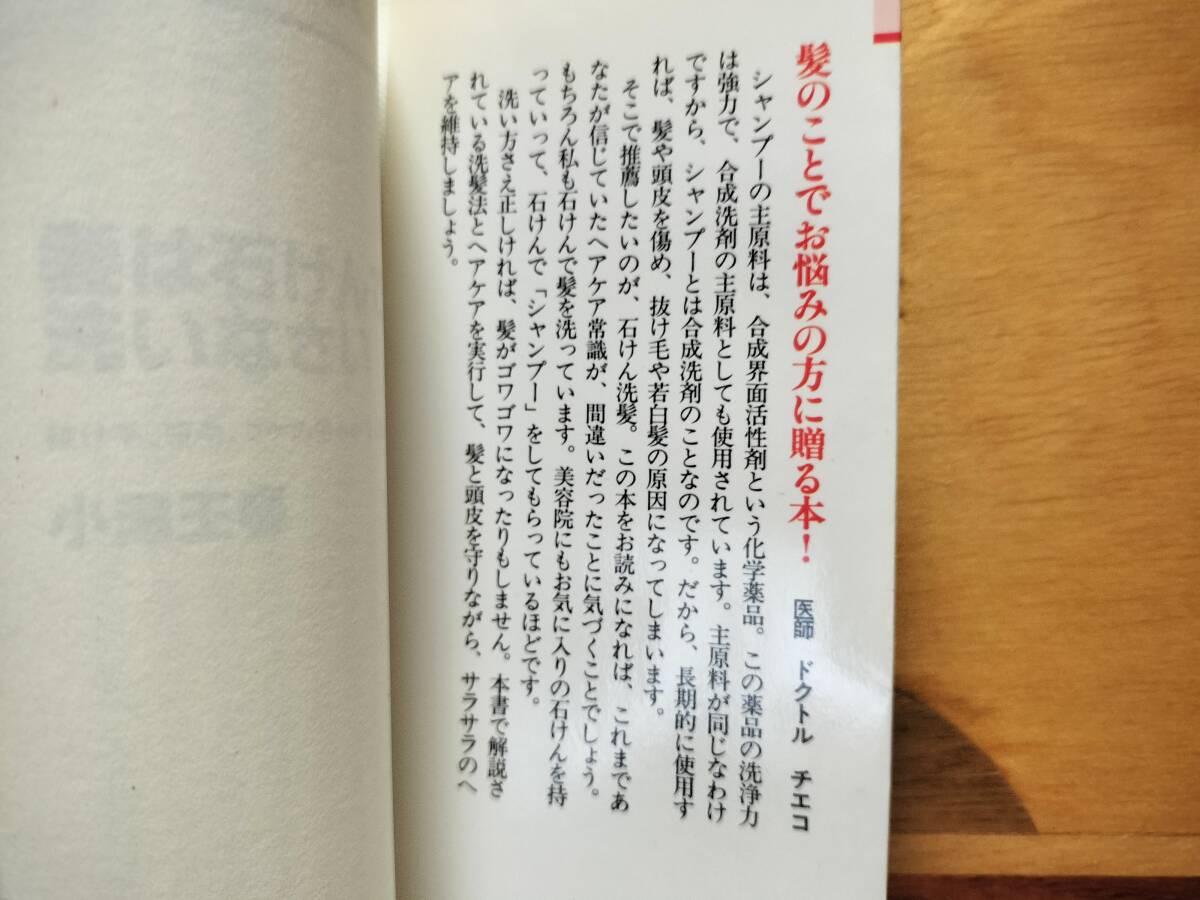 髪のことでお悩みの方に贈る本！
医師　ドクトル　チエコ
シャンプーの主原料は、合成界面活性剤という化学薬品。この薬品の洗浄力
は強力で、合成洗剤の主原料としても使用されています。主原料が同じなわけ
ですから、シャンプーとは合成洗剤のことなのです。だから、長期的に使用す
れば、髪や頭皮を傷め、抜け毛や若白髪の原因になってしまいます。
そこで推薦したいのが、石けん洗髪。この本をお読みになれば、これまであ
なたが信じていたヘアケア常識が、間違いだったことに気づくことでしょう。
もちろん私も石けんで髪を洗っています。美容院にもお気に入りの石けんを持
っていって、石けんで「シャンプー」をしてもらっているほどです。
洗い方さえ正しければ、髪がゴワゴワになったりもしません。本書で解説さ
れている洗髪法とヘアケアを実行して、髪と頭皮を守りながら、サラサラのヘ
アを維持しましょう。